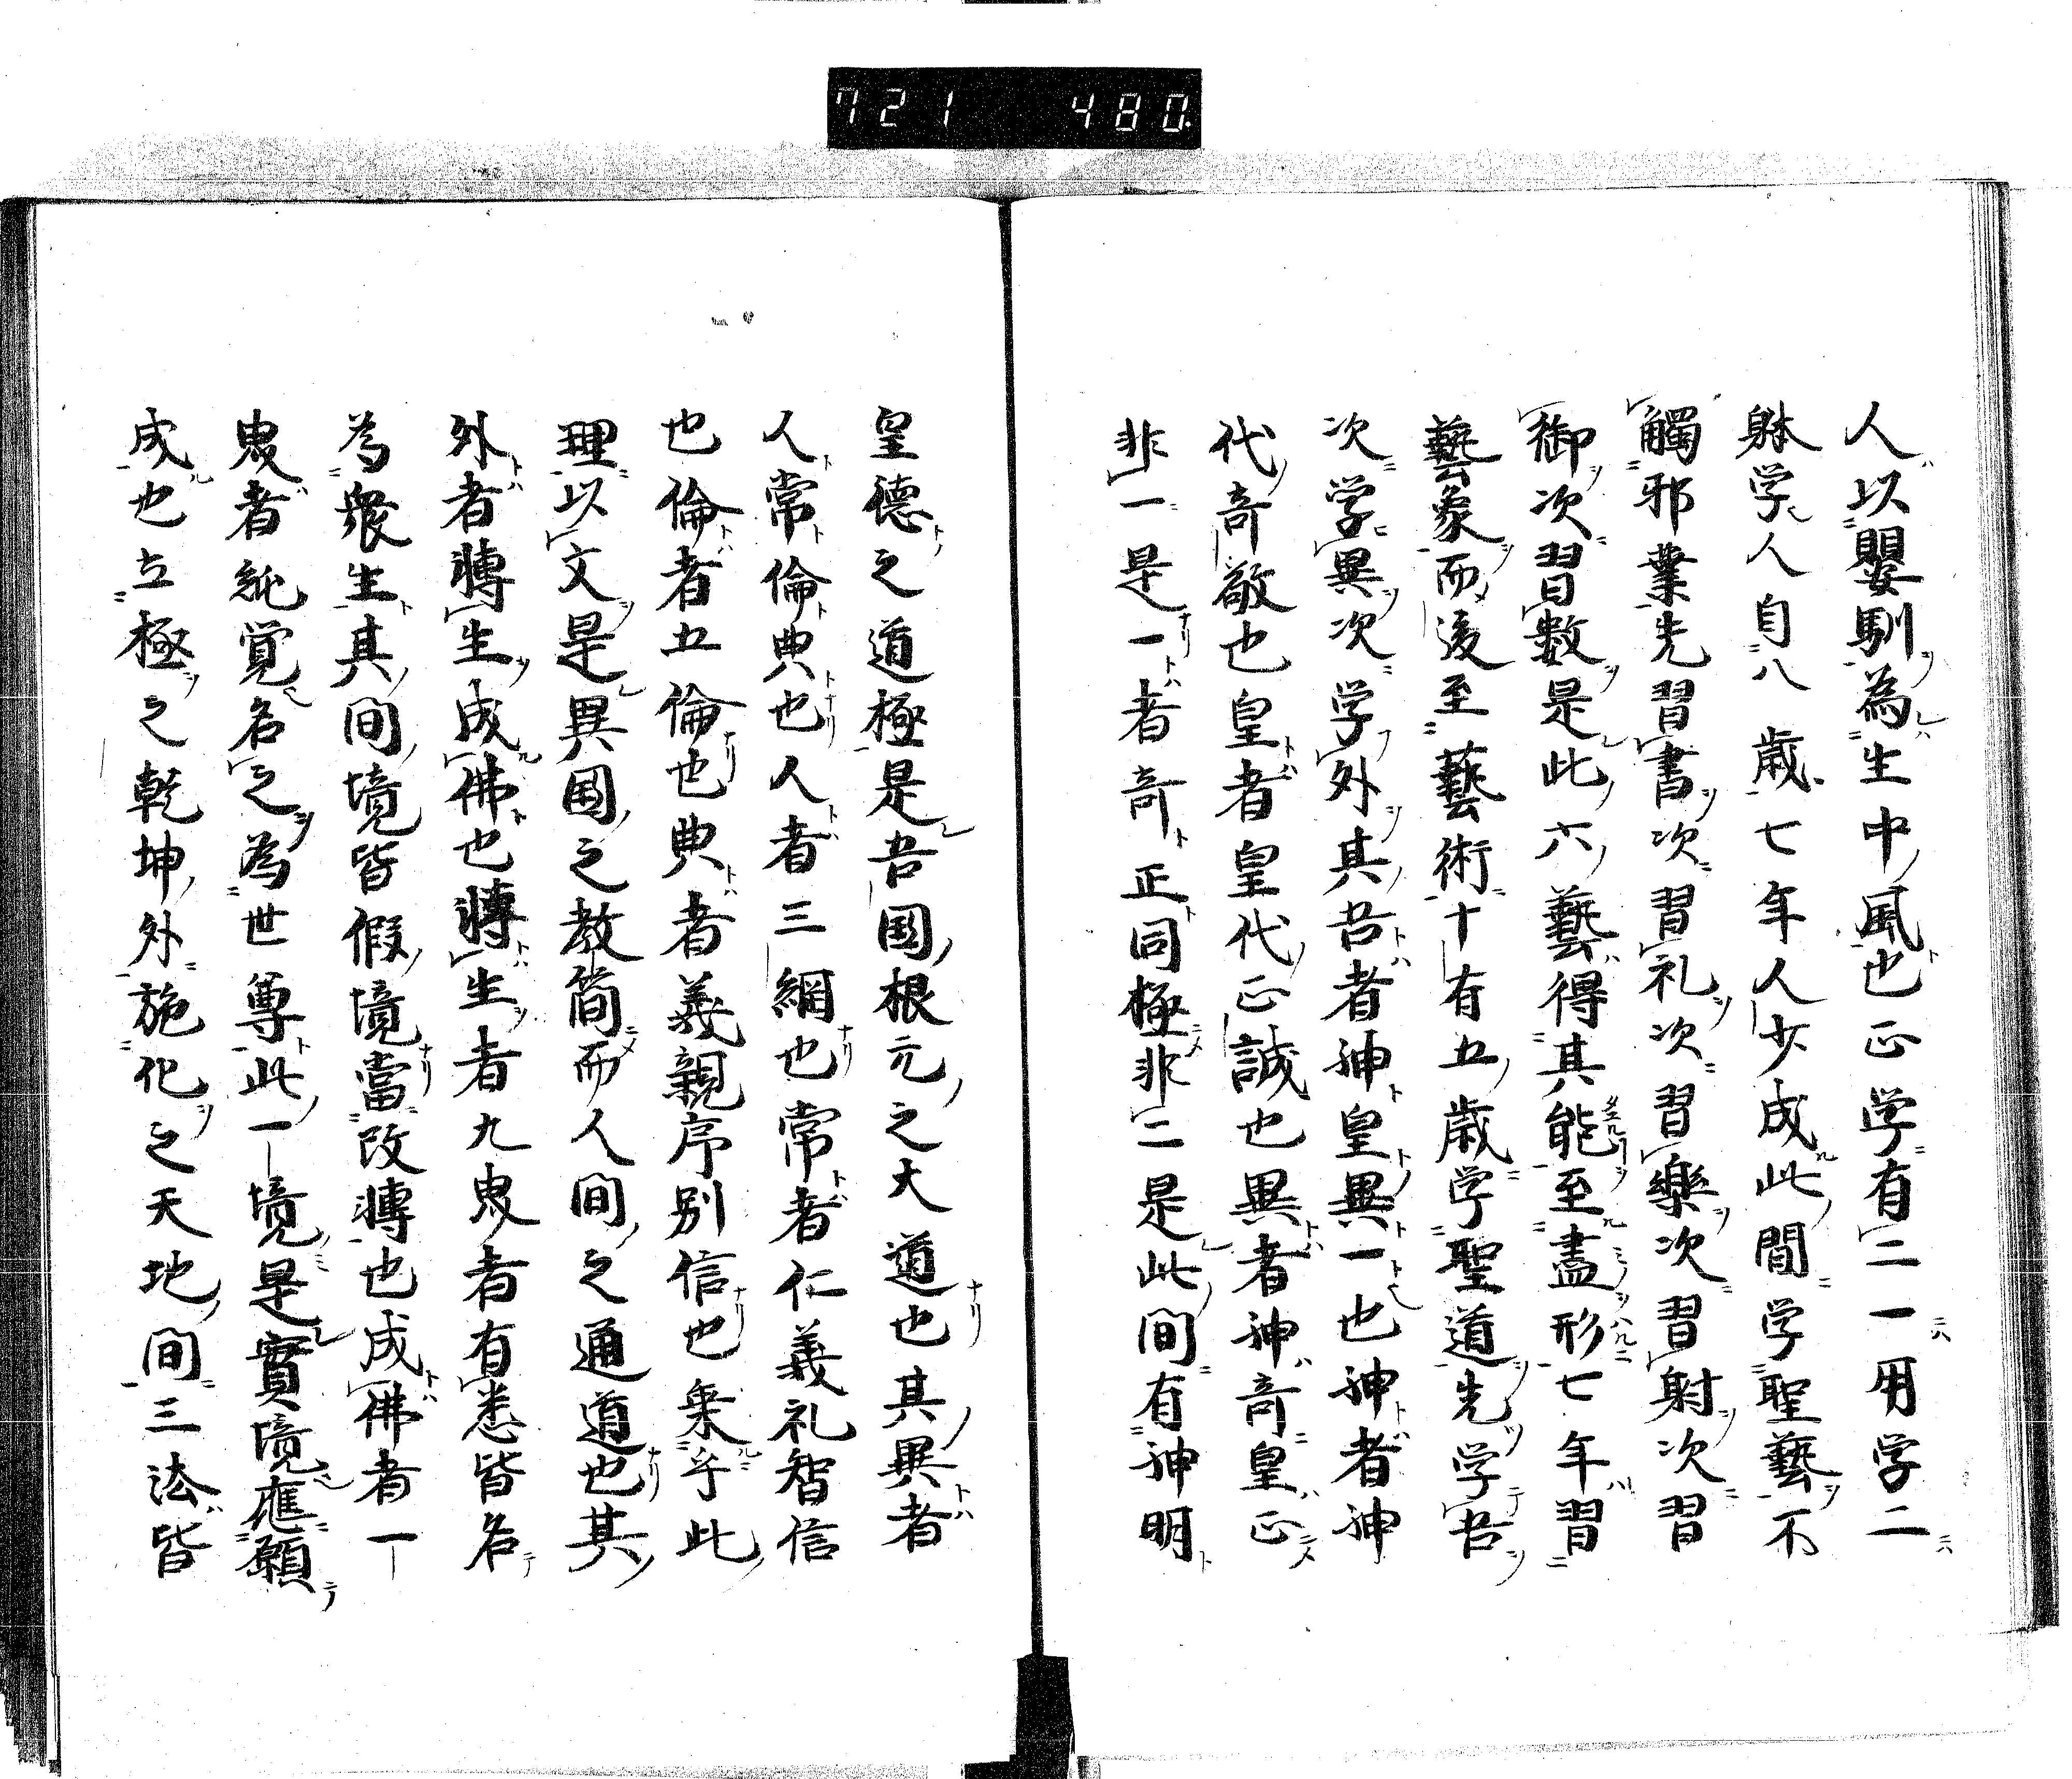 721 480
人以嬰馴為生中風也正学有二一用学二
躰学人自八歳七年人少成此間学聖藝不
觸邪業先習書次習礼次習樂次習射次習
御次習数是此六藝得其能至盡形七年習
藝象而後至藝術十有五歳学聖道先学吾
次学異次学外其吾者神皇異一也神者神
代奇敬也皇者皇代正誠也異者神奇皇正
非一是一者奇正同極非二是此間有神明
皇德之道極是吾国根元之大道也其異者
人常倫典也人者三綱也常者仁義礼智信
也倫者五倫也典者義親序別信也乗乎此
理以文是異国之教簡而人間之通道也其
外者轉生成佛也轉生者九曳者有悉皆名
為衆生其間境皆假境當改轉也成佛者一
曳者純覚名之為世尊此一境是實境應願
成也立極之乾坤外施化之天地間三法皆